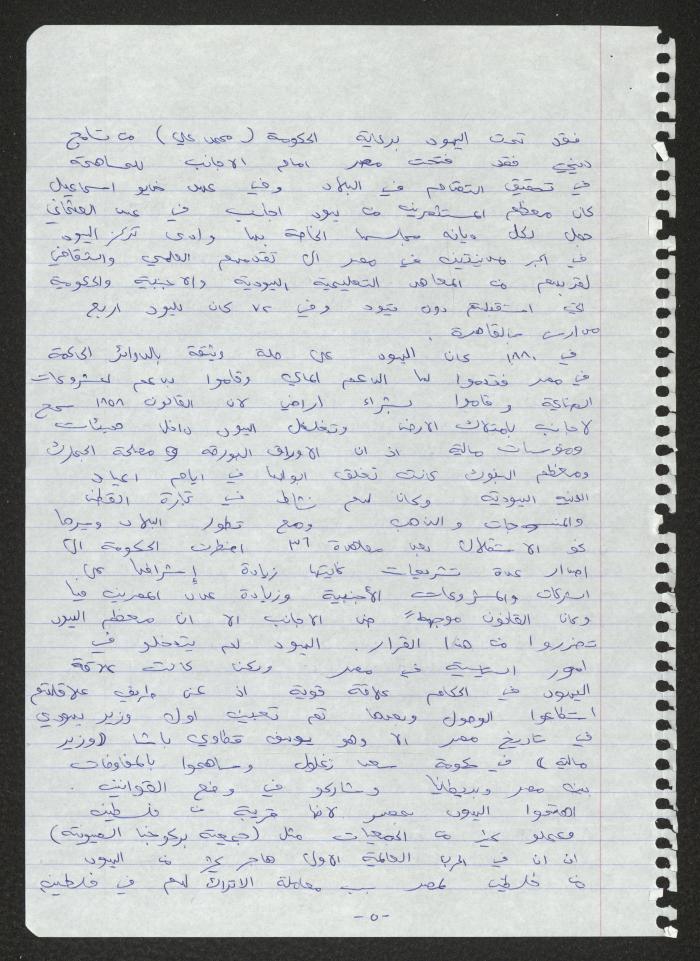 فقد تحت اليهود برعاية الحكومة (محمد علي) من تسامح
ديني فقد فتحت مصر امام الاجانب للمساهمة
في تحقيق التقدم في البلاد وفي عهد خديو اسماعيل
كان معظم المستثمرين من يهود اجانب في عهد العثماني
جعل لكل ديانه مجالسها الخاصة بها وادى تركز اليهود
في اكبر مدينتين في مصر الى تقدمهم العلمي والثقافي
لقربهم من المعاهد التعليمية اليهودية والاجنبية والحكومة
التي استقبلتهم دون قيود وفي ٧٤ كان لليهود اربع
مدارس بالقاهرة .
في ١٨٨٠ كان اليهود على صلة وثيقة بالدوائر الحاكمة
في مصر فقدموا لها الدعم المالي وقاموا بدعم المشروعات
الصناعية وقاموا بشراء اراضي لان القانون ١٨٥٨ سمح
لاجانب بامتلاك الارض وتغلغل اليهود داخل هيئات
ومؤسسات مالية اذ ان الاوراق البورصة و مصلحة الجمارك
ومعظم البنوك كانت تغلق ابوابها في ايام اعياد
الدينيه اليهودية وكان لهم نشاط في تجارة القطن
والمنسوجات والذهب ومع تطور البلاد وسيرها
نحو الاستقلال بعد معاهدة ٣٦ اضطرت الحكومة الى
اصدار عدة تشريعات غايتها زيادة إشرافها على
الشركات والمشروعات الأجنبية وزيادة عدد المصريين فيها
وكان القانون موجهاً ضد الاجانب الا ان معظم اليهود
تضرروا من هذا القرار . اليهود لم يتدخلو في
امور السياسية في مصر ولكن كانت علاقة
اليهود في الحكام علاقة قوية اذ عن طريق علاقاتهم
استطاعوا الوصول وبعدها تم تعيين اول وزير يهودي
في تاريخ مصر الا وهو يوسف قطاوي باشا (وزير
مالية) في حكومة سعد زغلول وساهموا بالمفاوضات
بين مصر وبريطانيا وشاركو في وضع القوانين .
اهتموا اليهود بمصر لانها قريبة من فلسطين
وعملو كثير من الجمعيات مثل (جمعية بركوخبا الصهيونية)
اذ ان في الحرب العالمية الاولى هاجر كثير من اليهود
من فلسطين لمصر بسبب معاملة الاتراك لهم في فلسطين
-٥-